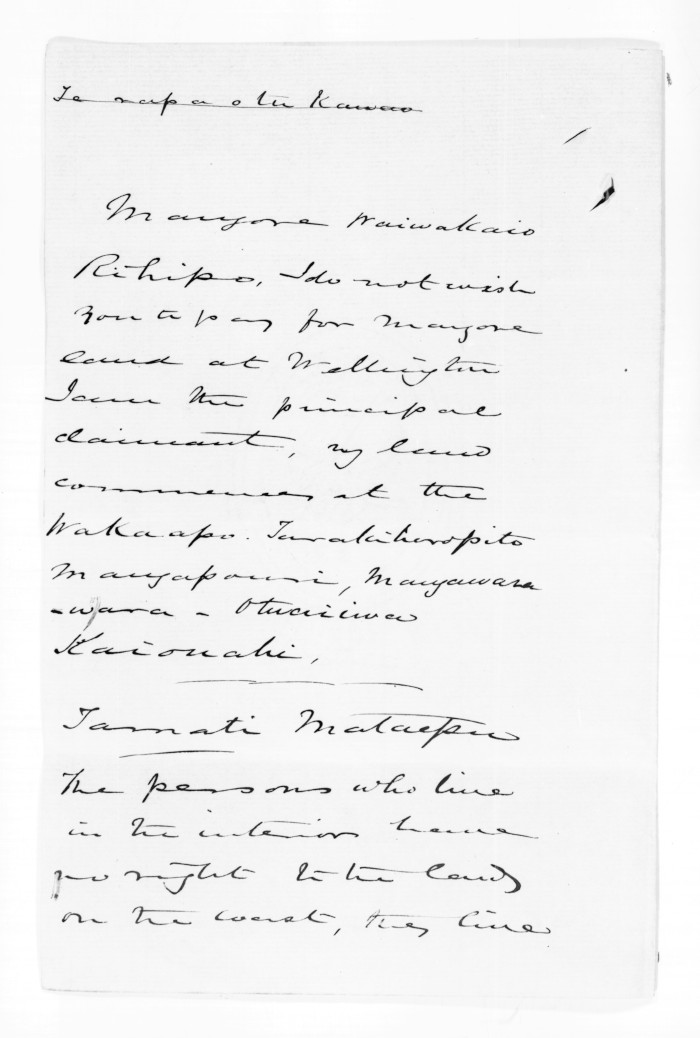 Te rapa o tu Kawao
Mangore Waiwakaio
Rihipo, I do not wish
you to pay for Mangore
land at Wellington
I am the principal
claimant, my land
commences at the
Waka apo.
Mangapouri, Mangawara
-wara -
Kaionahi,
Tamati
The persons who live
in the interior have
no right to the land
on the coast, they live